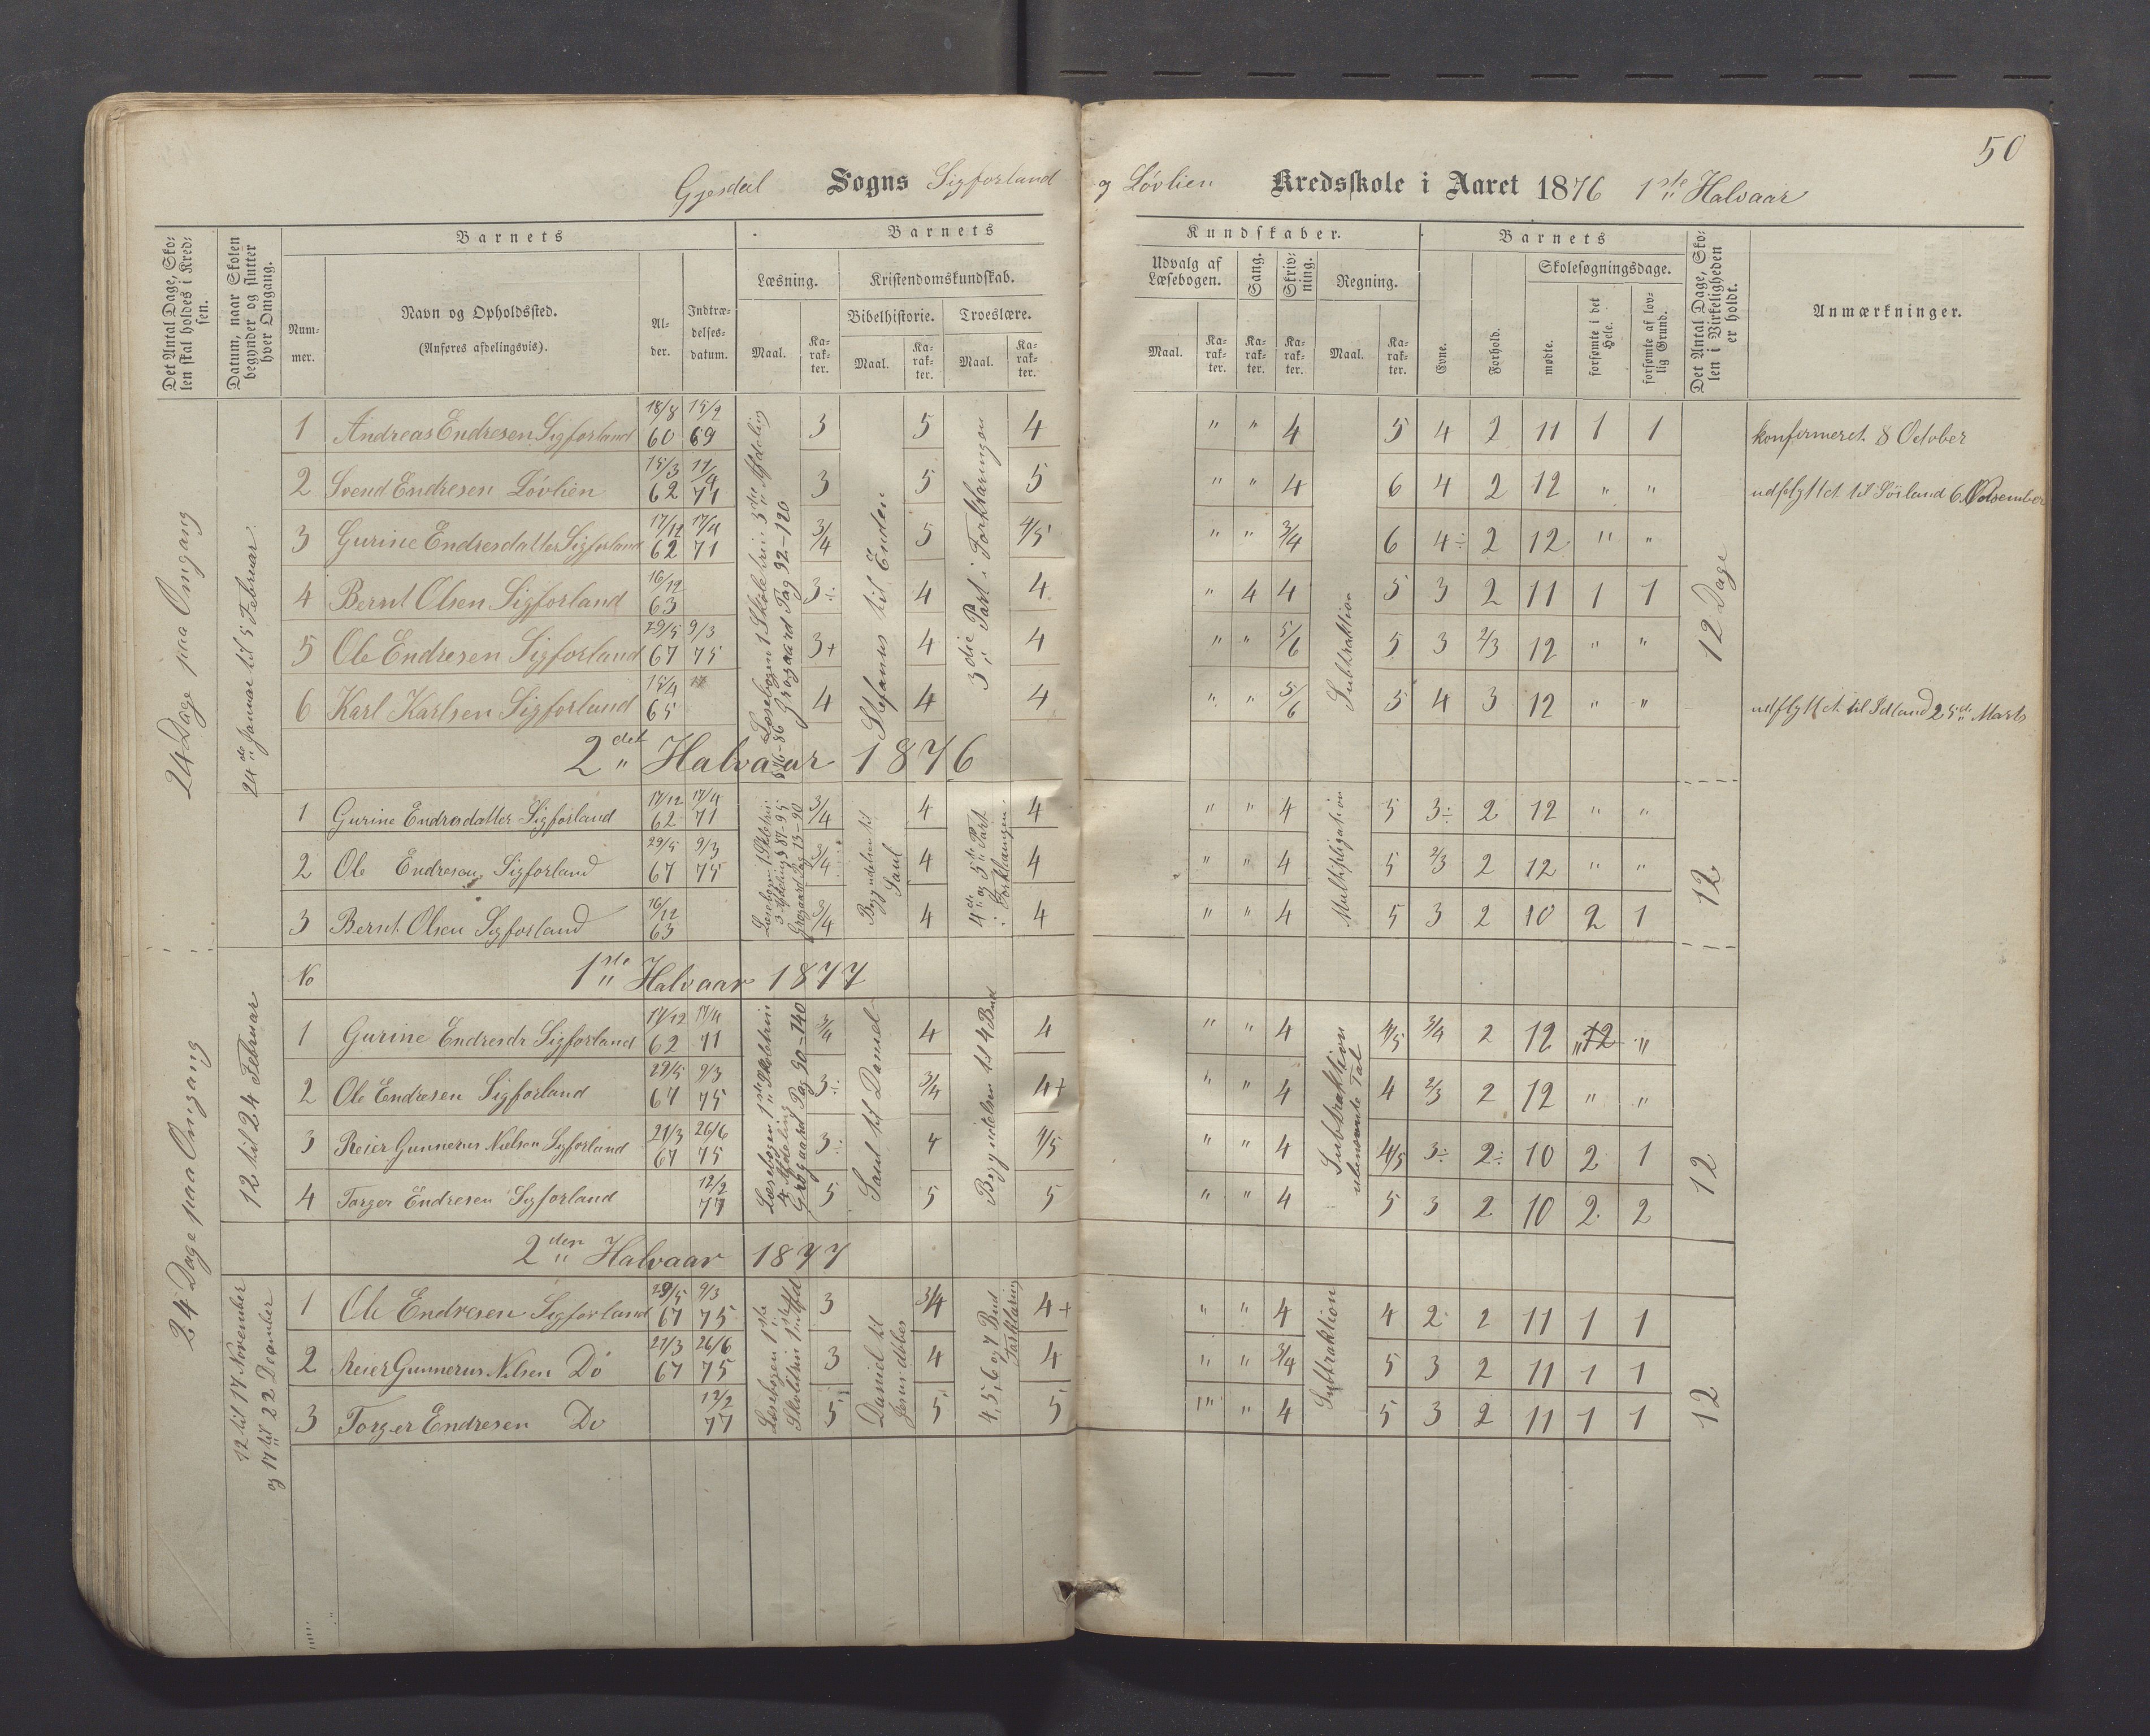 50
Gjesdal Sogns Sigforland og Løvlien Kredsskole i Aaret 1876 1ste Halvaar
Det Antal Dage, Sko-
len skal holdes i Kred-
sen.
Datum, naar Skolen
begynder og slutter
hver Omgang.
Barnets
Num-
mer.
Navn og Opholdssted.
(Anføres afdelingsvis).
Al-
der.
Indtræ-
delses-
datum.
Barnets
Læsning.
Maal.
Ka-
rak-
ter.
Kristendomskundskab.
Bibelhistorie.
Maal.
Ka-
rak-
ter.
Troeslære.
Maal.
Ka-
rak-
ter.
Kundskaber.
Udvalg af
Læsebogen.
Maal.
Ka-
rak-
ter.
Sang.
Ka-
rak-
ter.
Skriv-
ning.
Ka-
rak-
ter.
Regning.
Maal.
Ka-
rak-
ter.
Barnets
Evne.
Forhold.
Skolesøgningsdage.
mødte.
forsømte i det
Hele.
forsømte af lov-
lig Grund.
Det Antal Dage, Sko-
len i Virkeligheden
er holdt.
Anmærkninger.
24 Dage paa Omgang
24de Januar til 5 Februar
Læsebogen 1 Skoletrin 3die Afdeling
§ 76-86 Grøgaard Pag 92-120
Stefanus til Enden
3die Part i Forklaringen
Subtraktion
12 Dage
1 Andreas Endresen Sigforland 18/8 60 15/2 69 3 5 4 " " 4 5 4 2 11 1 1 konfirmeret 8 October
2 Svend Endresen Løvlien 15/3 62 17/4 71 3 5 5 " " 4 6 4 2 12 " " udflyttet til Sörland 6 November
3 Gurine Endresdatter Sigforland 17/12 62 17/4 71 3/4 5 4/5 " " 3/4 6 4÷ 2 12 " "
4 Bernt Olsen Sigforland 16/12 63 3÷ 4 4 " 4 4 5 3 2 11 1 1
5 Ole Endresen Sigforland 29/5 67 9/3 75 3+ 4 4 " " 5/6 5 3 2/3 12 " "
6 Karl Karlsen Sigforland 15/4 65 4 4 4 " " 5/6 5 4 3 12 " " udflyttet til 25de Marts
2det Halvaar 1876
Læsebogen 1 Skoletrin
3 Afdeling § 87-95
Grøgaard Pag 13-90
Begyndelsen til
Saul
4de og 5te Part
i Forklaringen
Multipligation
12
1 Gurine Endresdatter Sigforland 17/12 62 17/4 71 3/4 4 4 " " 4 5 3÷ 2 12 " "
2 Ole Endresen Sigforland 29/5 67 9/3 75 3/4 4 4 " " 4 5 2/3 2 12 " "
3 Bernt Olsen Sigforland 16/12 63 3/4 4 4 " " 4 5 3 2 10 2 1
No 1ste Halvaar 1877
24 Dage paa Omgang
12 til 24 Februar
Læsebogen 1ste Skoletrin
4 Afdeling
Grøgaard Pag 90-140
Saul til Daniel
Begyndelsen til 4 Bud
Subtraktion
ubenævnte Tal
12
1 Gurine Endresdr Sigforland 17/12 62 17/4 71 3/4 4 4 " " 4 4/5 3/4 2 12 " 12 "
2 Ole Endresen Sigforland 29/5 67 9/3 75 3÷ 3/4 4+ " " 4 4 2/3 2 12 " "
3 Reier Gunnerus Nielsen Sigforland 21/3 67 26/6 75 3÷ 4 4/5 " " 4 4/5 3÷ 2÷ 10 2 1
4 Torger Endresen Sigforland 12/2 77 5 5 5 " " 4 5 3 2 10 2 2
2den Halvaar 1877
12 til 17 November
og 17 til 22 December
Læsebogen 1ste
Skoletrin 1ste Afd
Daniel til
Jesu dåbes
4, 5, 6 og 7 Bud
Forklaring
Subtraktion
12
1 Ole Endresen Sigforland 29/5 67 9/3 75 3 3/4 4+ " " 4 4 2 2 11 1 1
2 Reier Gunnerus Nilsen Do 21/3 67 26/6 75 3 4 4 " " 3/4 5 3 2 11 1 1
3 Torger Endresen Do 12/2 77 5 5 5 " " 4 5 3 2 11 1 1